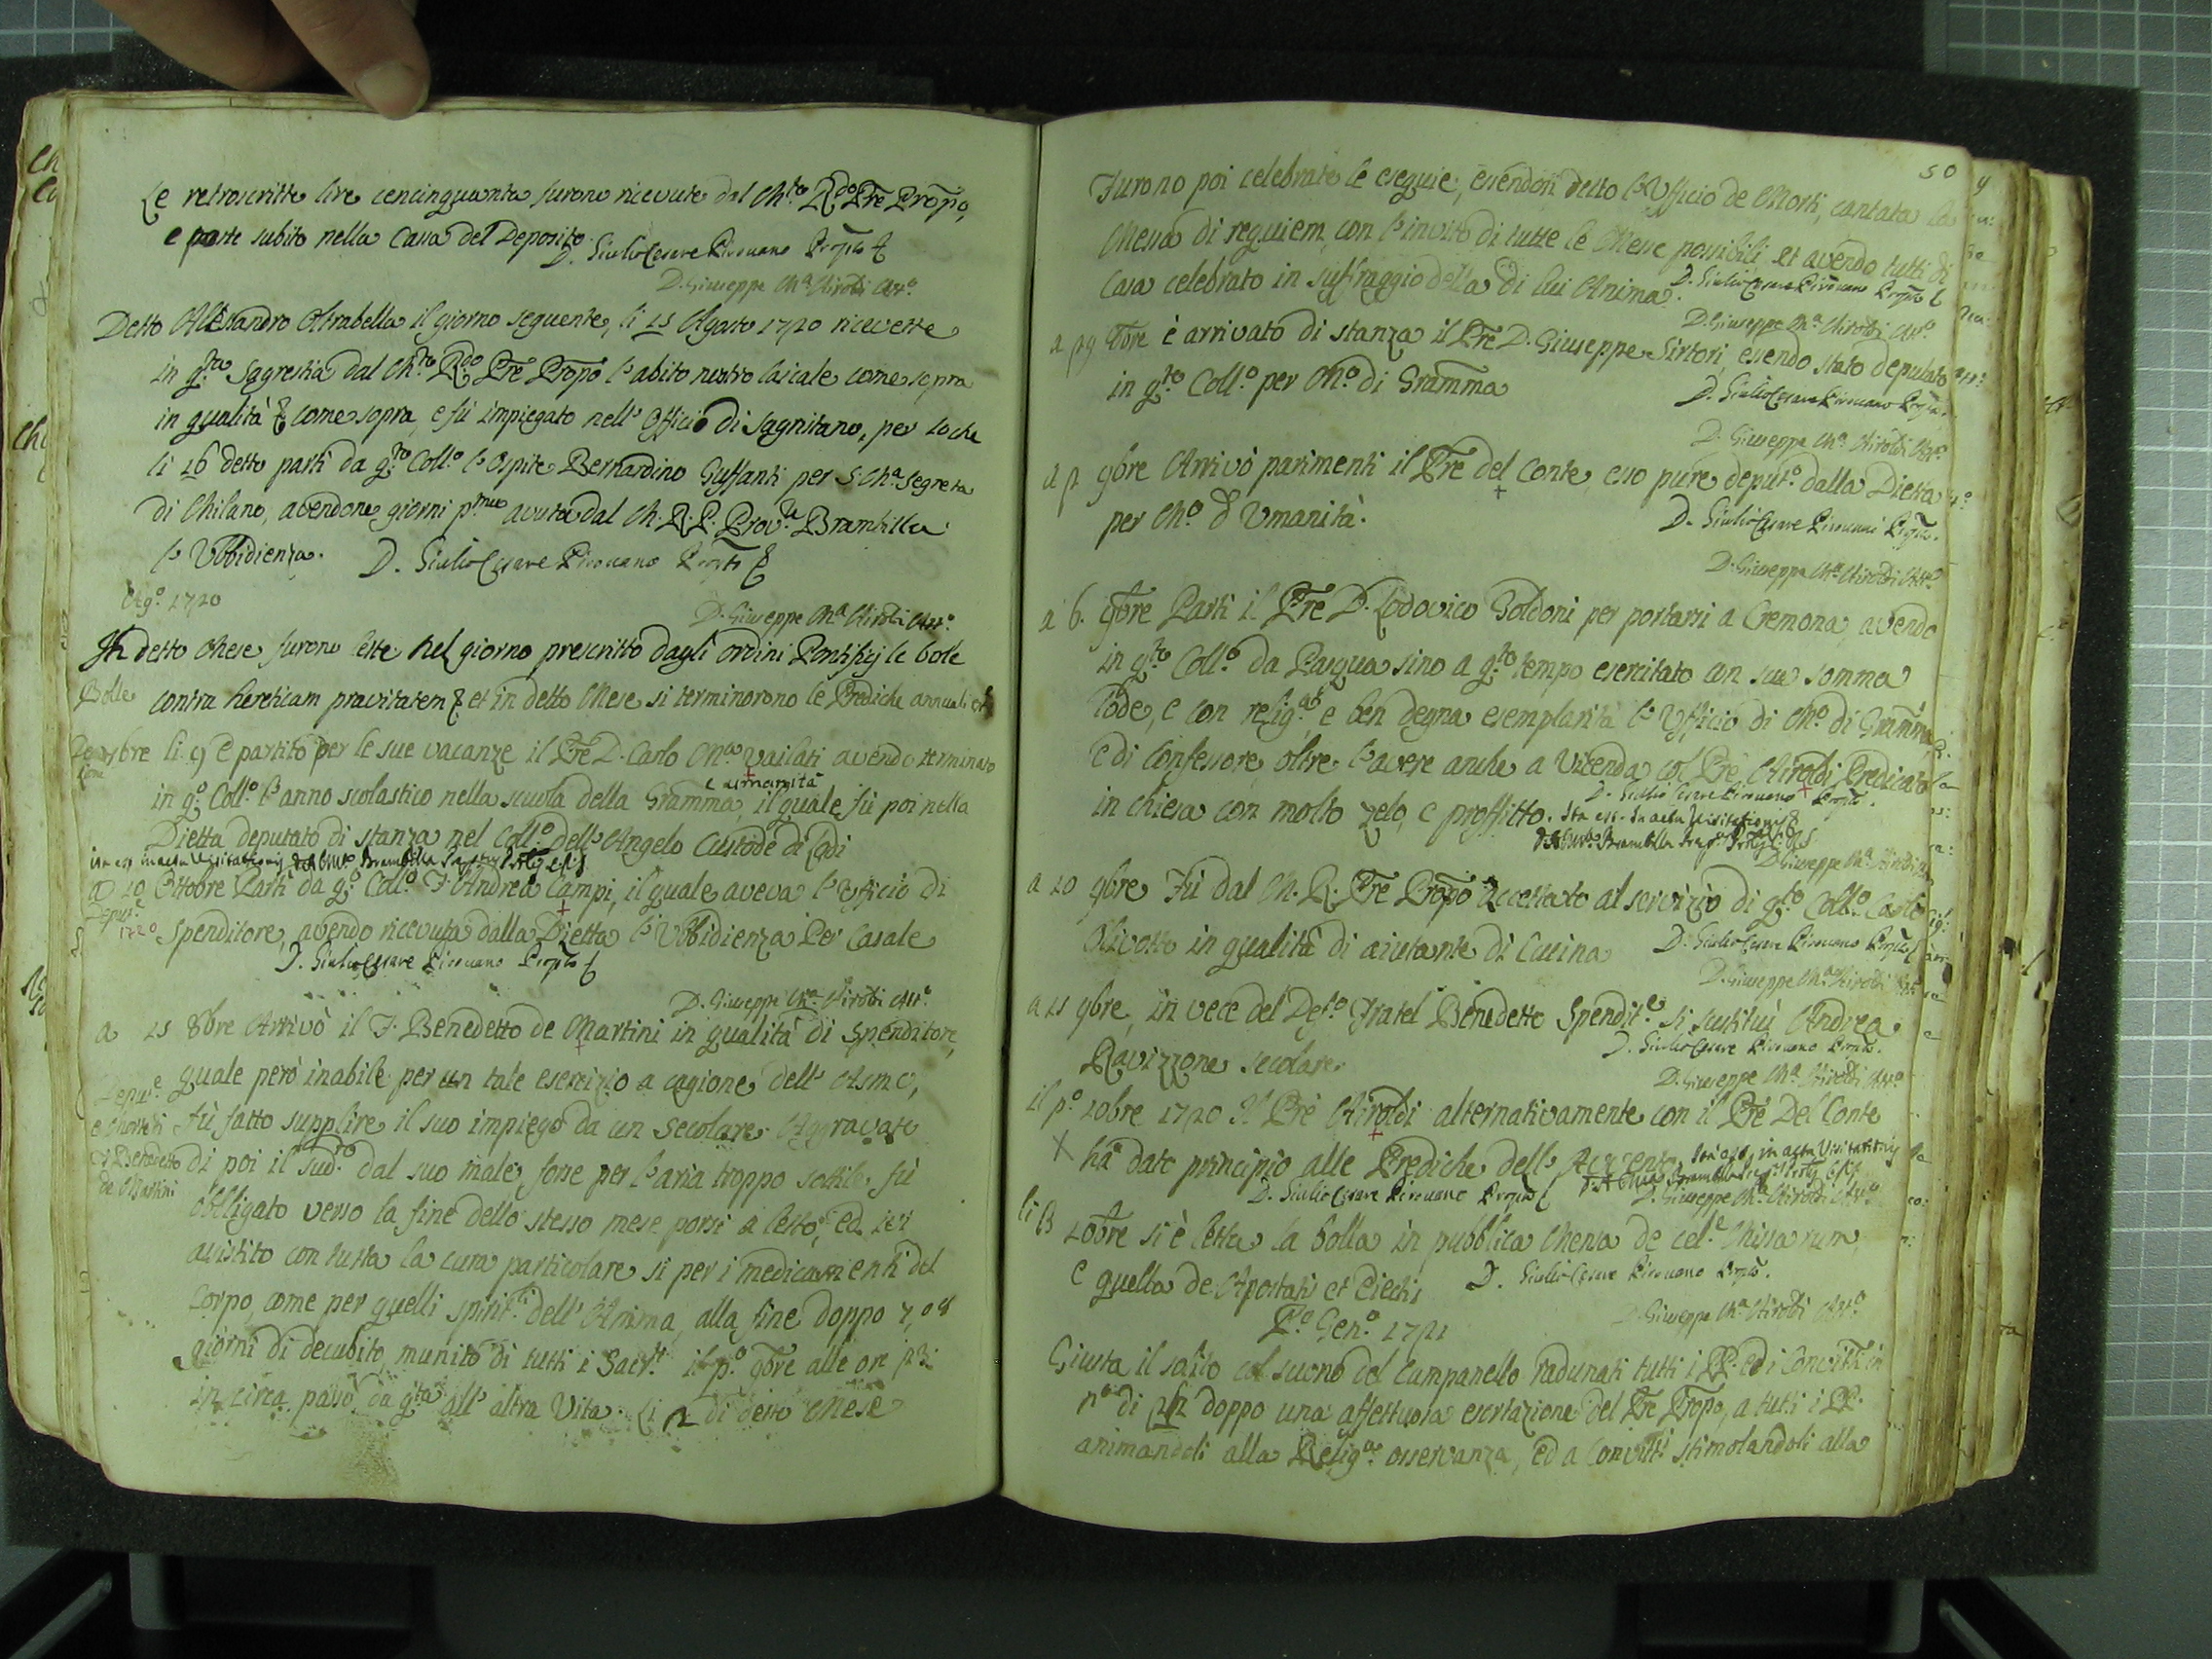 Le retroscritte lire cencinquanta furono ricevute dal M.to R.do Pre Propo,
e poste subito nella Cassa del Deposito.
D. Giulio Cesare Pirovano Propto
D. Giuseppe Ma Airoldi Att.o
Detto Alessandro Mirabella il giorno seguente, li 15 Agosto 1720 ricevette
in q.ta Sagrestia dal M.to R.do Pre Propo l'abito nostro laicale come sopra
in qualità come sopra, e fù impiegato nell'Officio di Sagristano, per lo che
li 16 detto partì da q.to Coll.o l'Ospite Bernardino Guffanti per S. Ma. Segreta
di Milano, avendone giorni p.ma avuta dal M. R. P. Prov.le Brambilla
l'Ubbidienza. D. Giulio Cesare Pirovano Propto
Ag.o 1720
D. Giuseppe Ma Airoldi Att.o
In detto Mese furono lette nel giorno prescritto dagli ordini Pontificj le bole
Bolle
contra hereticam pravitatem et in detto Mese si terminorono le Prediche annuali
7bre li 9 è partito per le sue vacanze il Pre D. Carlo Ma Vailati avendo terminato
e umanità
in q.o Coll.o l'anno scolastico nella scuola della Gramma, il quale fù poi nella
Dietta deputato di stanza nel Coll.o dell'Angelo Custode di Lodi
ita est in actu Visitationis Brambilla
a 10 Ottobre Partì da q.o Coll.o F. Andrea Campi, il quale aveva l'Ufficio di
1720
Spenditore, avendo ricevuta dalla Dietta l'Ubbidienza Per Casale
D. Giulio Cesare Pirovano Propto
D. Giuseppe Ma Airoldi Att.o
a 15 8bre Arrivò il F. Benedetto de Martini in qualità di Spenditore,
quale però inabile per un tale esercizio a cagione dell'Asma,
e Morte di
fù fatto supplire il suo impiego da un secolare. Aggravato
F. Benedetto
di poi il sud.to dal suo male, forse per l'aria troppo sottile, fù
de Martini
obbligato verso la fine dello stesso mese porsi a letto, ed ivi
assistito con tutta la cura particolare si per i medicamenti del
Corpo, come per quelli spirit.li dell'Anima, alla fine doppo 7, o 8
giorni di decubito, munito di tutti i Sacr.ti il p.o 9bre alle ore 23
in circa passò da q.ta all'altra Vita. Li 2 di detto Mese
50
Furono poi celebrate le esequie, essendosi detto l'Ufficio de Morti, cantata la
Messa di requiem, con l'invito di tutte le Messe possibili, et avendo tutti di
Casa celebrato in suffraggio della di lui Anima.
D. Giulio Cesare Pirovano Propto
D. Giuseppe Ma Airoldi Att.o
a 29 8bre è arrivato di stanza il Pre D. Giuseppe Sirtori, essendo stato deputato
in q.to Coll.o per M.o di Gramma
D. Giulio Cesare Pirovano Propto.
D. Giuseppe Ma Airoldi Att.o
a 2 9bre Arrivò parimenti il Pre del Conte, esso pure deput.o dalla Dietta
per M.o d'Umanità.
D. Giulio Cesare Pirovani Propto.
D. Giuseppe Ma Airoldi Att.o
a 6. 9bre Partì il Pre D. Lodovico Goldoni per portarsi a Cremona, avendo
in q.to Coll.o da Pasqua sino a q.to tempo esercitato con sua somma
lode, e con relig.a e ben degna esemplarità l'Ufficio di M.o di Gramma
e di Confessore, oltre l'avere anche a Vicenda col Pre Airoldi Predicato
in chiesa con molto zelo, e proffitto.
D. Giulio Cesare Pirovano Propto.
Ita est in actu Visitationis
Brambilla
D. Giuseppe Ma Airoldi
a 10 9bre Fù dal M. R. Pre Propo accettato al servizio di q.to Coll.o Carlo
Olivotto in qualità di aiutante di Cucina
D. Giulio Cesare Pirovano Propto
D. Giuseppe Ma Airoldi Att.o
a 15 9bre, in vece del Def.o Fratel Benedetto Spendit.e si sustituì Andrea
Ravizzone secolare.
D. Giulio Cesare Pirovano Propto.
D. Giuseppe Ma Airoldi Att.o
il p.o 10bre 1720 Il Pre Airoldi alternativamente con il Pre Del Conte
X hà dato principio alle Prediche dell'Avvento.
Ita est, in actu Visitationis
Brambilla
D. Giulio Cesare Pirovano Propto
D. Giuseppe Ma Airoldi Att.o
li 8 10bre si è letta la bolla in pubblica Mensa de cel.e Missarum
e quella de Apostatis et Eiectis
D. Giulio Cesare Pirovano Propto.
D. Giuseppe Ma Airoldi Att.o
P.o Gen.o 1721
Giusta il solito col suono del Campanello radunati tutti i PP. ed i Convitti in
n.o di doppo una affettuosa esortazione del Pre Propo, a tutti i PP.
animandoli alla Relig.a osservanza, ed a Convitti stimolandoli alla